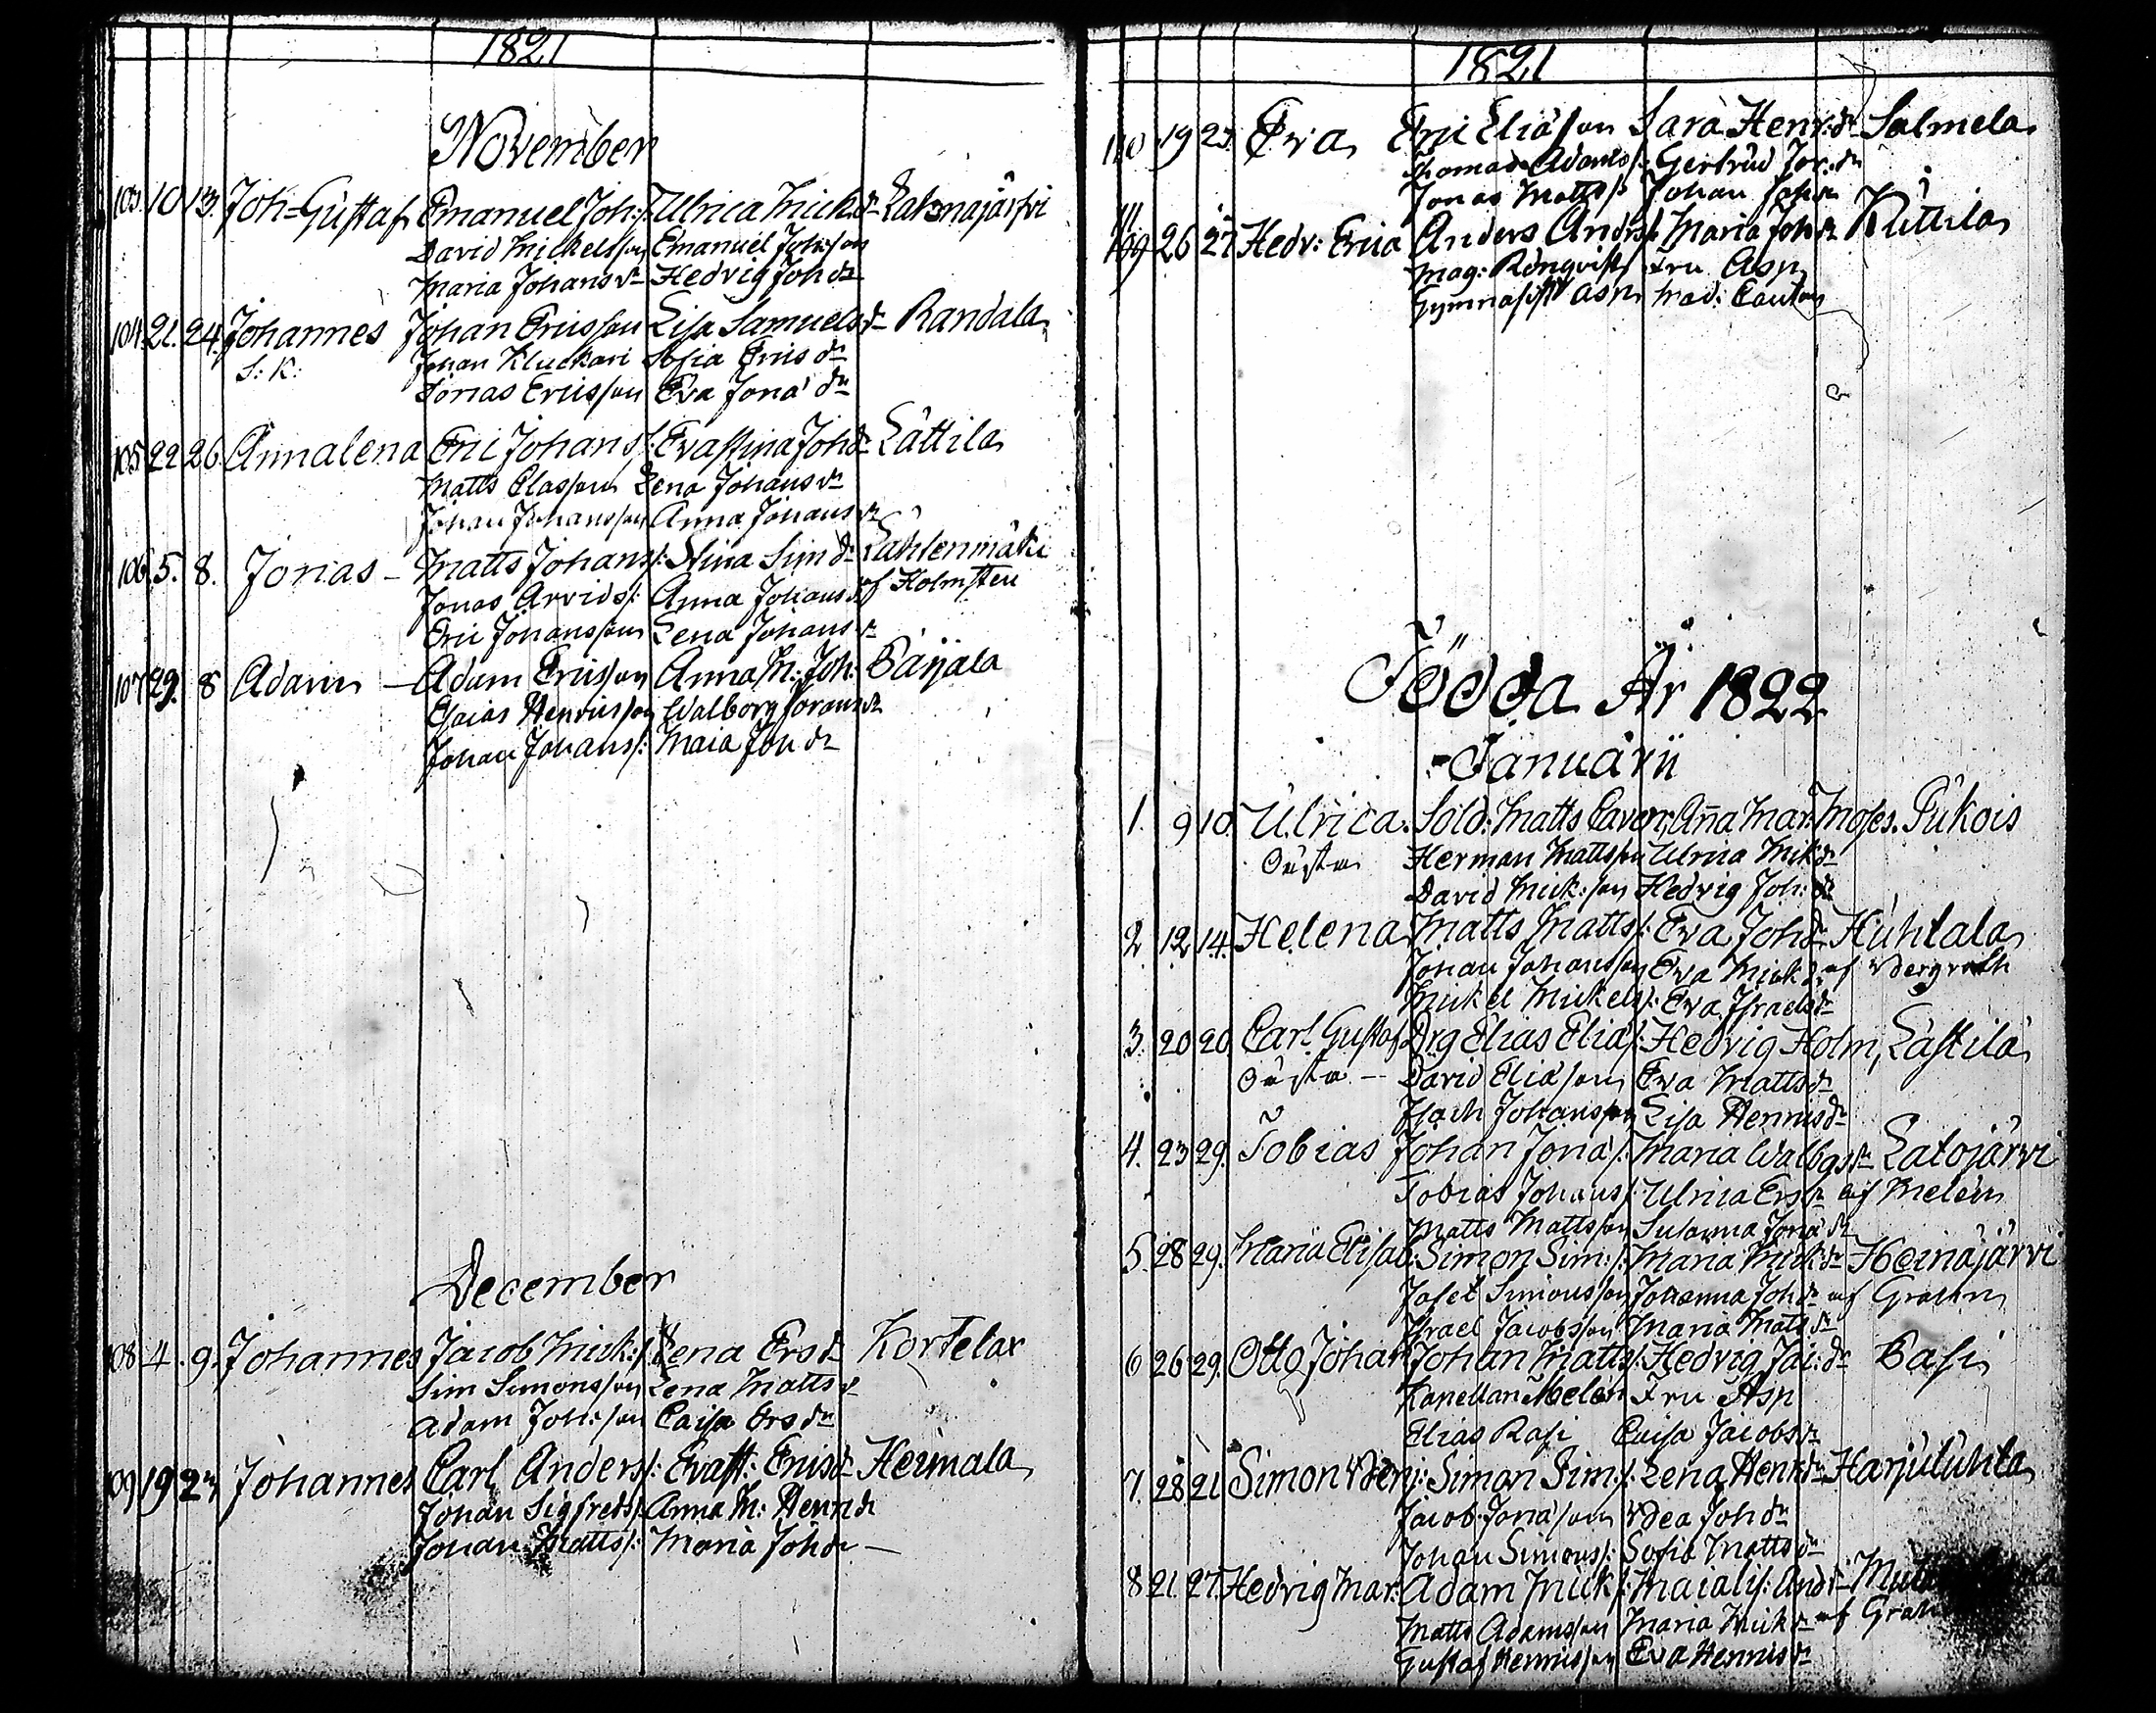 1821
November
103. 10 13. Joh-Gustaf Emanuel Joh:s: Ulrica Mick dr Latsnajärfvi
David Mickelsson Emanuel Johsson
Maria Johans dr Hedvig Joh dr
104. 21. 24. Johannes Johan Ericsson Lisa Samuels dr Randala
S: K: Johan Kluckari Sofia Erics dr
Jonas Ericsson Eva Jona dr
105 22 26 Annalena Eric Johans s: Evastina Joh dr Lättila
Matts Classon Lena Johans dr
Johan Johansson Anna Johans dr
106. 5. 8. Jonas - Matts Johans s: Stina Sim dr Lähtenmäki
Jonas Arvids s: Anna Johans dr af Holmsten
Eric Johansson Lena Johans dr
107 29. 8 Adam - Adam Ericsson Anna M: Joh: Pärjala
Esaias Henricsson Walborg Johans dr
Johan Johans s: Maia Joh dr
December
108 4. 9. Johannes Jacob Mick: s: Lena Ers dr Kortela
Sim Simonsson Lena Matts dr
Adam Joh:son Caisa Ers dr
109 19 2 Johannes Carl Anders s: Evast: Erics dr Heimala
Johan Sigfreds s: Anna M: Henr dr
Johan Matts s: Maria Joh dr —
1821
110 19 23. Eva Eric Eliasson Sara Henr: dr Salmela
Thomas Adams s: Gertrud Jor: dr
Jonas Matts s: Johan Joh dr
111 26 27 Hedv: Erica Anders Anders s: Maria Joh dr Kuttila
Mag: Rönqvist Fru Asp
Gymnasist Asp Mad: Cauton
Födda År 1822
Januarii
1. 9 10 Ulrica. Sold: Matts Caven, Anna Mar: Moses. Pukois
Oäkta Herman Mattsson Ulrica Mik dr
David Mick:son Hedvig Joh: dr
2 12 14. Helena Matts Matts s: Eva Joh dr Huhtala
Johan Johansson Eva Mick dr af Bergroth
Mickel Mickels s: Eva Israels dr
3. 20 20 Carl Gustaf Drg Elias Elias s: Hedvig Holm, Lastila
Oäkta - David Eliasson Eva Matts dr
Isach Johansson Lisa Henrics dr
4. 23 29. Tobias Johan Jona s: Maria Walbgs dr Latojärvi
Tobias Johans s: Ulrica Ers dr af Melen
Matts Mattsson Susanna Jona dr
5. 28 29. Maria Elisab: Simon Sim: s: Maria Mick dr Heinäjärvi
Josef Simonsson Johanna Joh dr af Grahn
Israel Jacobsson Maria Matts dr
6 26 29. Otto Johan Johan Matts s: Hedvig Jac: dr Basi
Kapellan Melen Fru Asp
Elias Rasi Caisa Jacobs dr
7. 28 21 Simon Benj: Simon Sim s: Lena Henr dr Harjuluhta
Jacob Jonasson Bea Joh dr
Johan Simons s: Sofia Matts dr
8 21. 27. Hedvig Mar: Adam Mick s: Maialis: And dr
Matts Adamsson Maria Mick dr af Grah
Gustaf Henricsson Eva Henrics dr